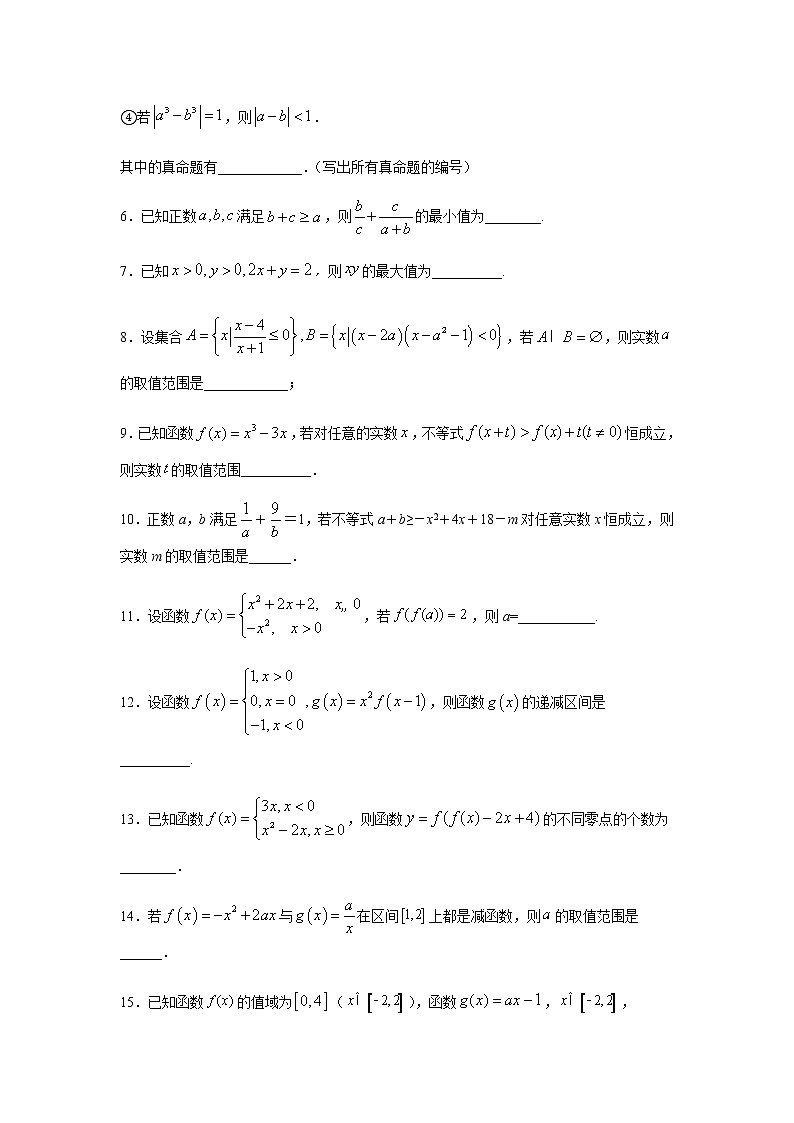 ④若|a³－b³|＝1，则|a－b|＜1．
其中的真命题有____________．（写出所有真命题的编号）
6．已知正数a,b,c满足b+c≥a，则b/c+c/(a+b)的最小值为________.
7．已知x>0,y>0,2x+y=2．则xy的最大值为__________.
8．设集合A={x|(x−4)/(x+1)≤0},B={x|(x−2a)(x−a²−1)<0}，若AI B=∅，则实数a
的取值范围是____________；
9．已知函数f(x)=x³−3x，若对任意的实数x，不等式f(x+t)>f(x)+t(t≠0)恒成立，
则实数t的取值范围__________．
10．正数a，b满足1/a＋9/b＝1，若不等式a＋b≥－x²＋4x＋18－m对任意实数x恒成立，则
实数m的取值范围是______．
11．设函数f(x)={x²+2x+2, x,, 0
−x², x>0，若f(f(a))=2，则a=___________.
12．设函数f(x)={1,x>0
0,x=0,g(x)=x²f(x−1)，则函数g(x)的递减区间是
−1,x<0
__________.
13．已知函数f(x)={3x,x<0
x²−2x,x≥0，则函数y=f(f(x)−2x+4)的不同零点的个数为
________．
14．若f(x)=−x²+2ax与g(x)=a/x在区间[1,2]上都是减函数，则a的取值范围是
______．
15．已知函数f(x)的值域为[0,4]（xÎ [-2,2]），函数g(x)=ax−1，xÎ [-2,2]，